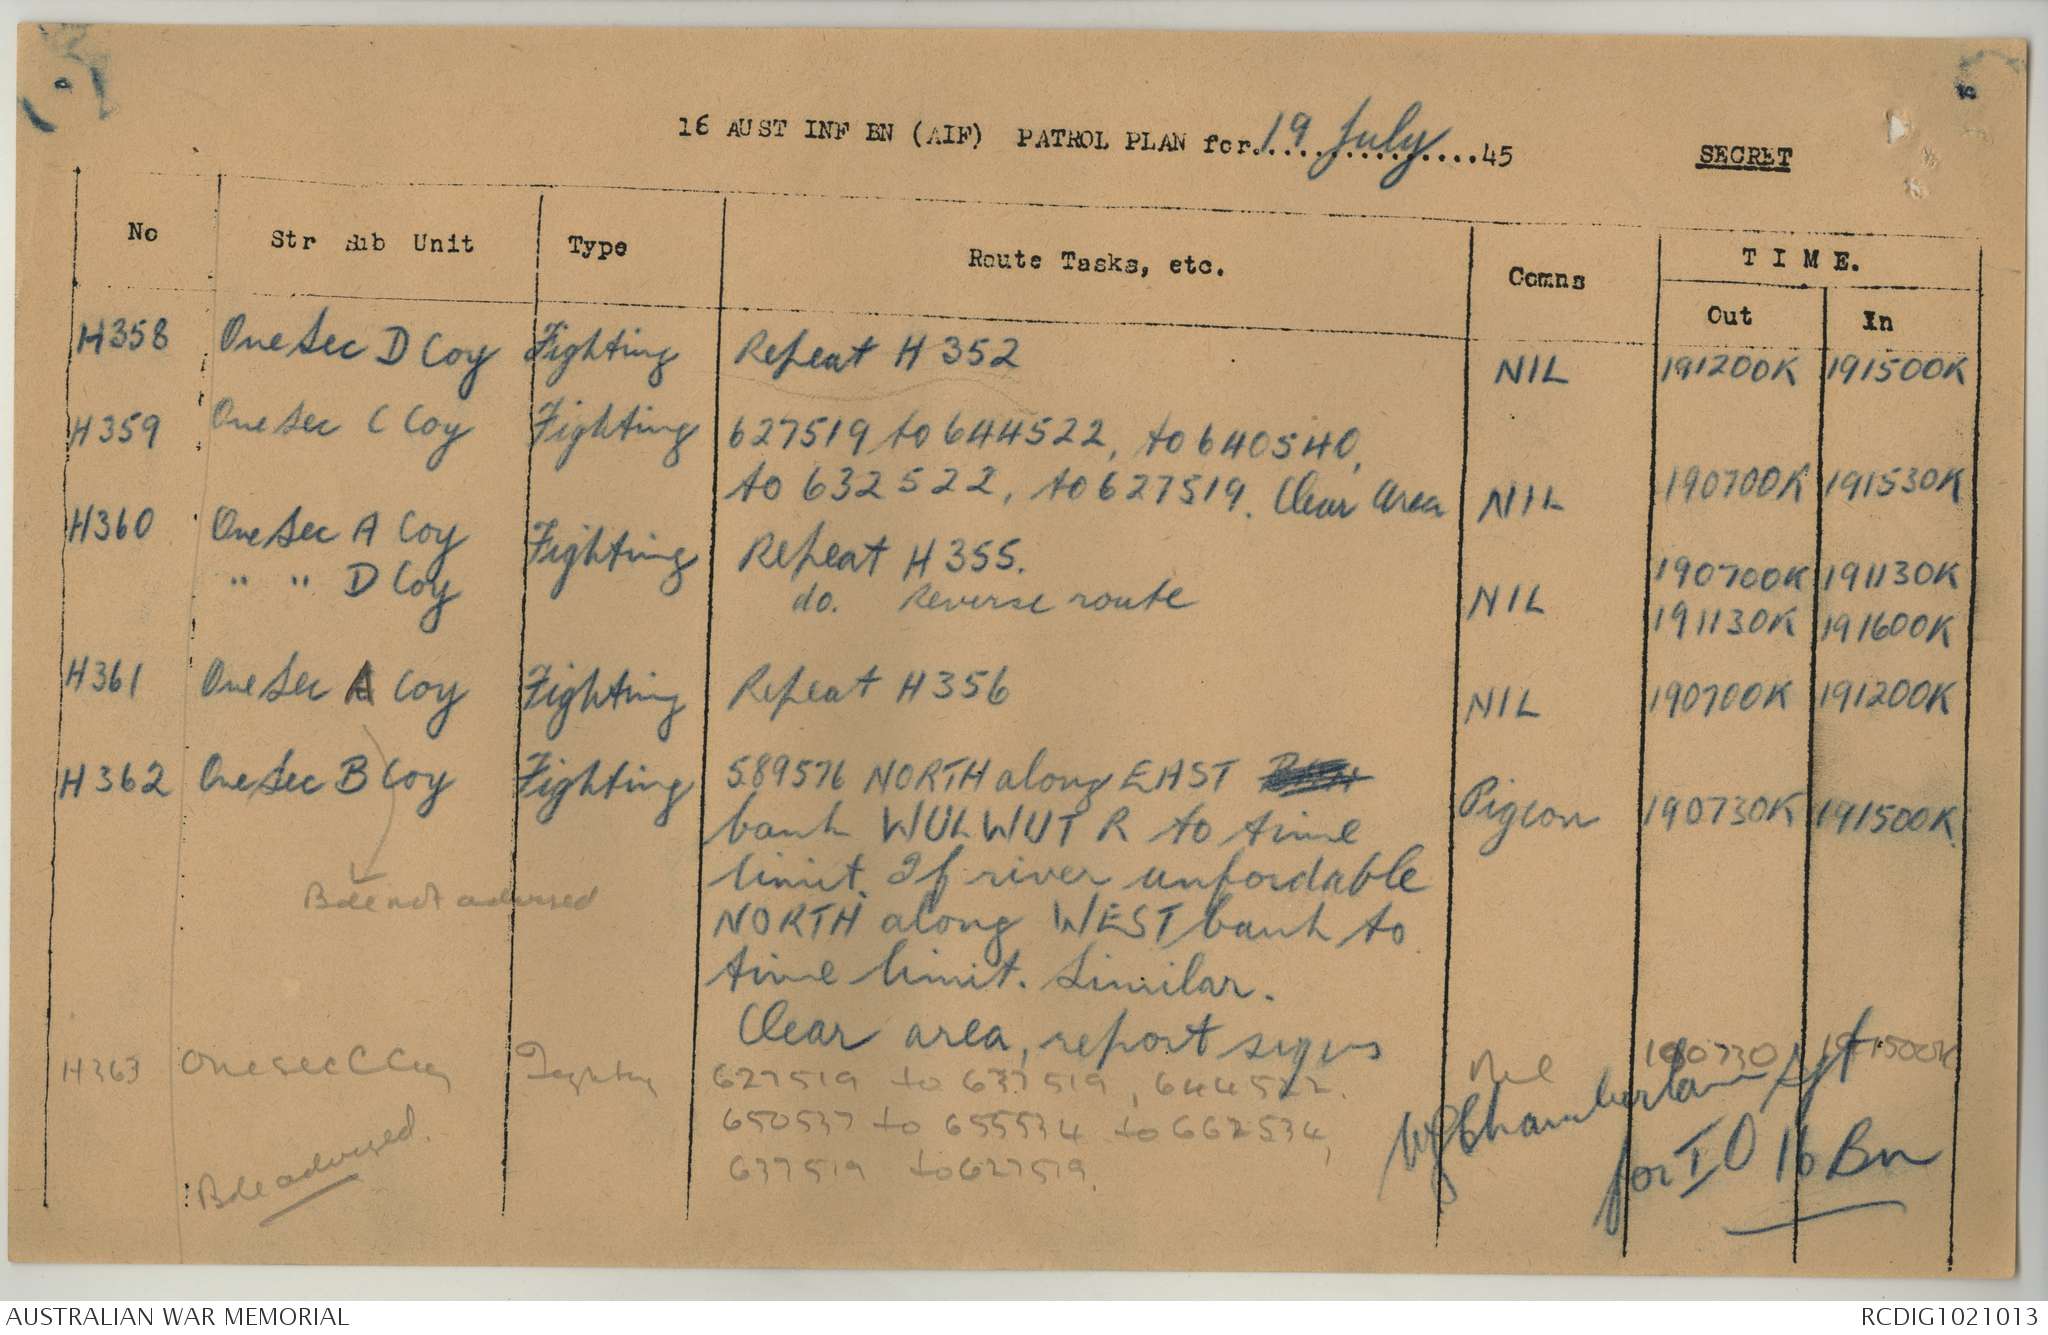 16 AUST INF BN (AIF) PATROL PLAN for 19 July 45
SECRET
No Str Sub Unit Type Route Tasks, etc. Comns TIME.
Out In
H358 One Sec D Coy Fighting Repeat H 352 NIL 191200K 191500K
H359 One Sec C Coy Fighting 627519 to 644522, to 640540,
to 632522, to 627519. Clear area NIL 190700K 191530K
H360 One Sec A Coy Fighting Repeat H 355. 190700K 191130K
" " D Coy do. Reverse route NIL 191130K 191600K
H361 One Sec A Coy Fighting Repeat H 356 NIL 190700K 191200K
H362 One Sec B Coy Fighting 589576 NORTH along EAST Pigeon 190730K 191500K
bank WULWUT R to time
limit. If river unfordable
Bde not advised
NORTH along WEST bank to
time limit. Similar.
Clear area, report signs
H363 One sec C Coy Fighting 627519 to 637519, 644522. Nil 190730 191500K
650537 to 655534 to 662534,
637519 to 627519.
Bde advised.
Chamberlain Sgt
for IO 16 Bn
AUSTRALIAN WAR MEMORIAL
RCDIG1021013